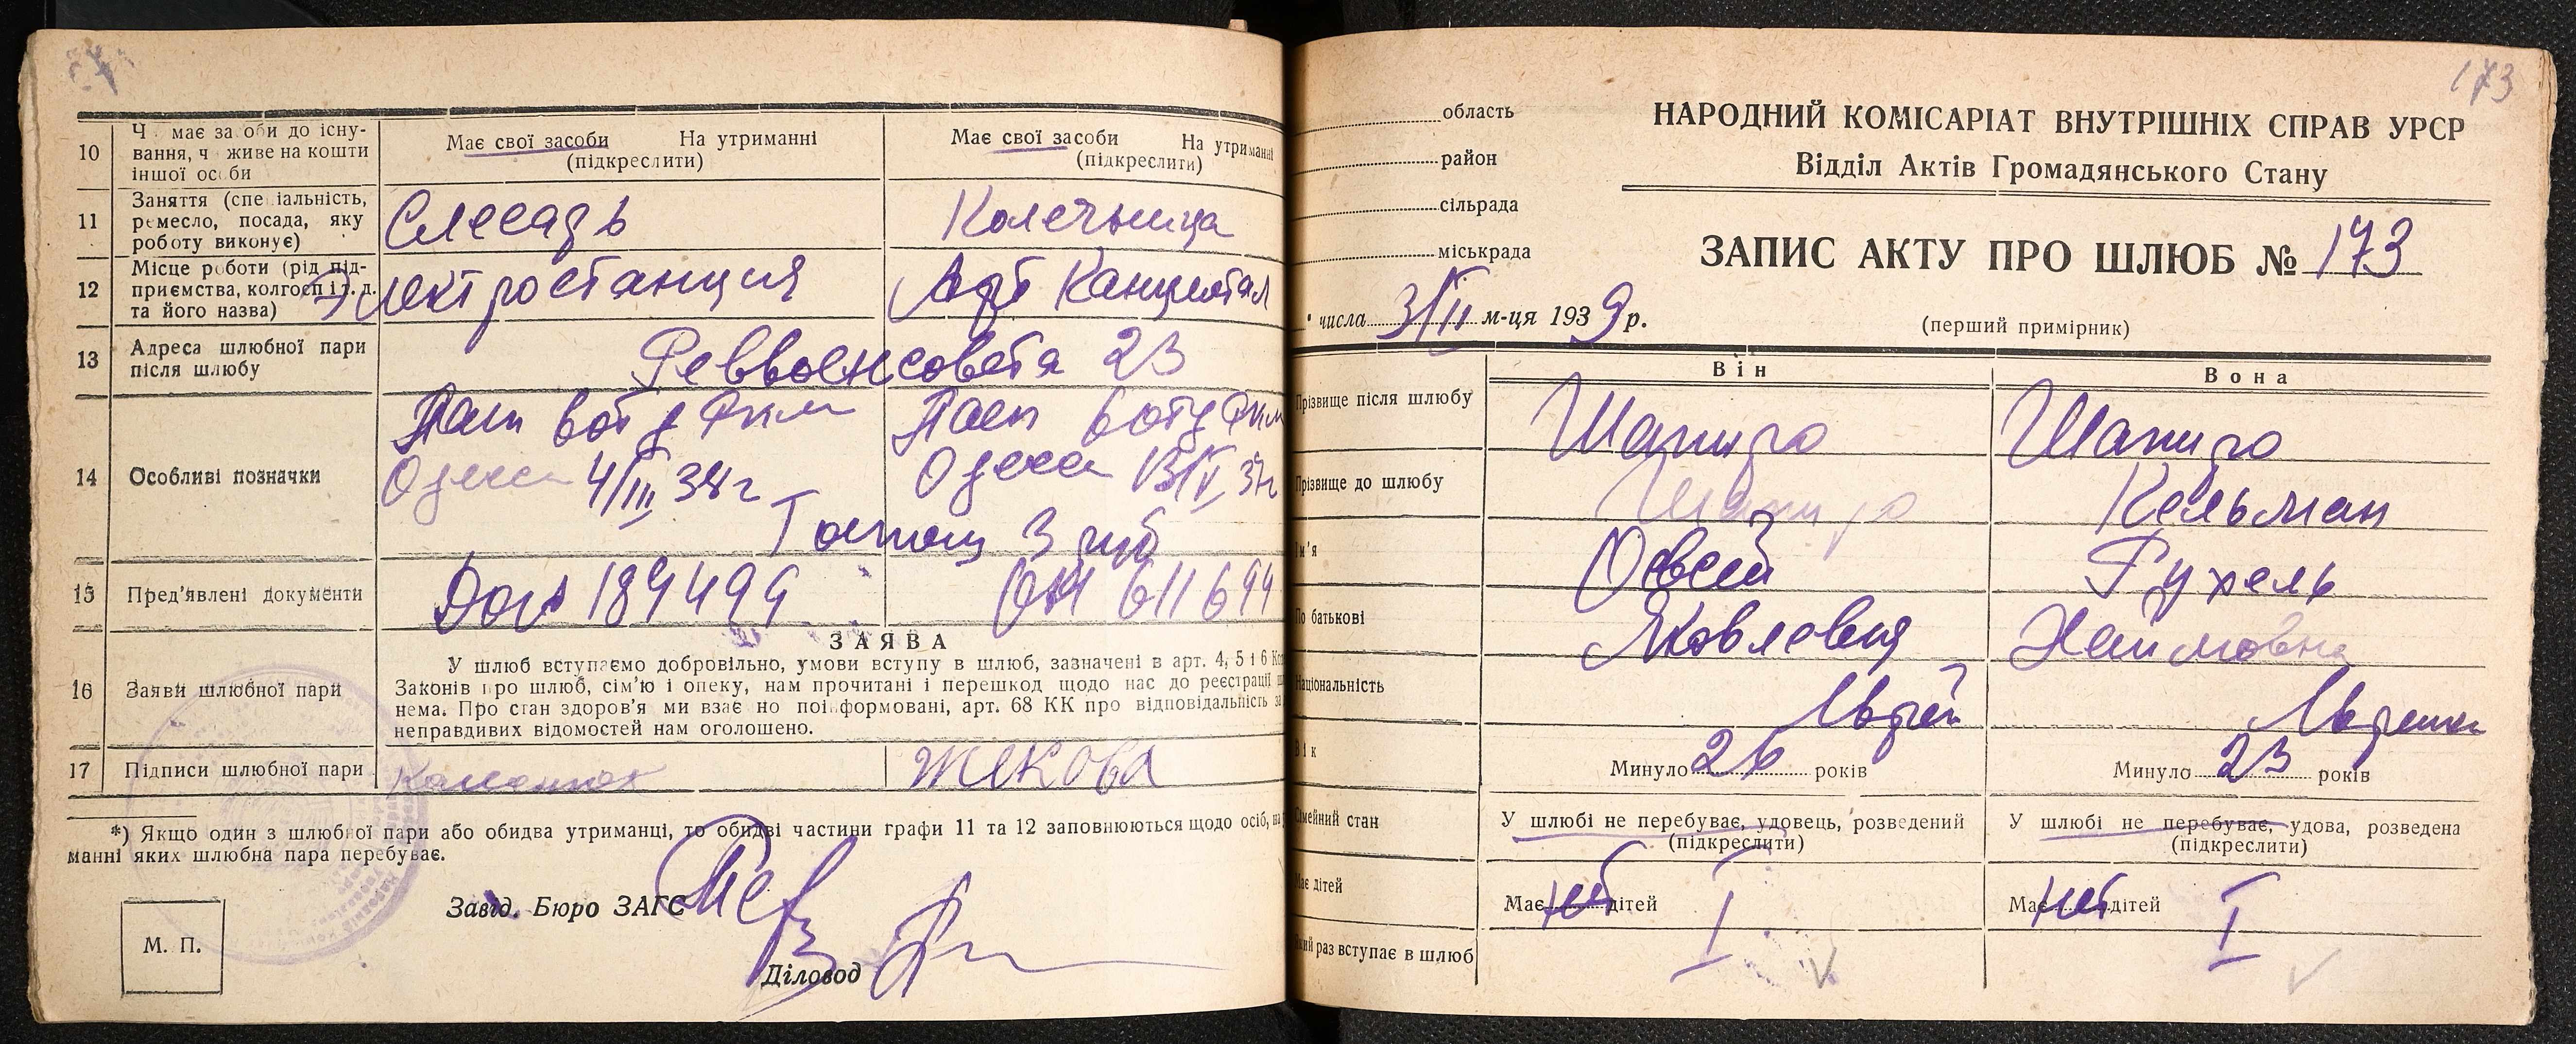 10
Ч має засоби до існу-
вання, ч живе на кошти
іншої особи
Має свої засоби На утриманні
(підкреслити)
Має свої засоби На утриманні
(підкреслити)
11
Заняття (спеціальність,
ремесло, посада, яку
роботу виконує)
Слесарь
12
Місце роботи (рід під-
приємства, колгосп і т. д.
та його назва)
Электростанция
Арт
13
Адреса шлюбної пари
після шлюбу
Реввоенсовета 23
14
Особливі позначки
Одесса 4/III 38 г
Одесса 13/V 37 г
Госпош 3 руб
15
Пред'явлені документи
189499
611699
16
Заяви шлюбної пари
ЗАЯВА
У шлюб вступаємо добровільно, умови вступу в шлюб, зазначені в арт. 4, 5 і 6
Законів про шлюб, сім'ю і опеку, нам прочитані і перешкод щодо нас до реєстрації
нема. Про стан здоров'я ми взаємно поінформовані, арт. 68 КК про відповідальність за
неправдивих відомостей нам оголошено.
17
Підписи шлюбної пари
*) Якщо один з шлюбної пари або обидва утриманці, то обидві частини графи 11 та 12 заповнюються щодо осіб, на
манні яких шлюбна пара перебуває.
Завід. Бюро ЗАГС
М. П.
Діловод
173
область
район
сільрада
міськрада
НАРОДНИЙ КОМІСАРІАТ ВНУТРІШНІХ СПРАВ УРСР
Відділ Актів Громадянського Стану
ЗАПИС АКТУ ПРО ШЛЮБ № 173
числа 3/II м-ця 1939 р.
(перший примірник)
Він
Вона
Прізвище після шлюбу
Шапиро
Шапиро
Прізвище до шлюбу
Шапиро
Кельман
Ім'я
Овсей
Рухель
По батькові
Яковлевич
Хаимовна
Національність
Еврей
Еврейка
Вік
Минуло 26 років
Минуло 23 років
Сімейний стан
У шлюбі не перебуває, удовець, розведений
(підкреслити)
У шлюбі не перебуває, удова, розведена
(підкреслити)
Має дітей
Має нет дітей
Має нет дітей
Який раз вступає в шлюб
I
I